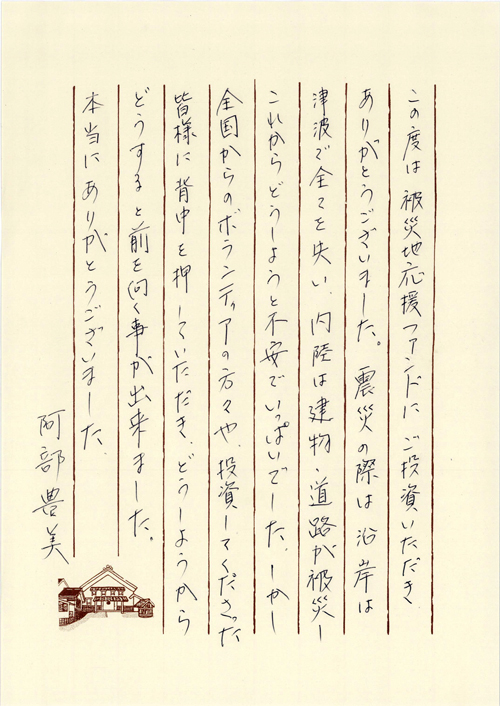 この度は被災地応援ファンドにご投資いただき
ありがとうございました。震災の際は沿岸は
津波で全てを失い、内陸は建物・道路が被災し
これからどうしようと不安でいっぱいでした。しかし
全国からのボランティアの方々や、投資してくださった
皆様に背中を押していただき、どうしようから
どうすると前を向く事が出来ました。
本当にありがとうございました。
阿部豊美